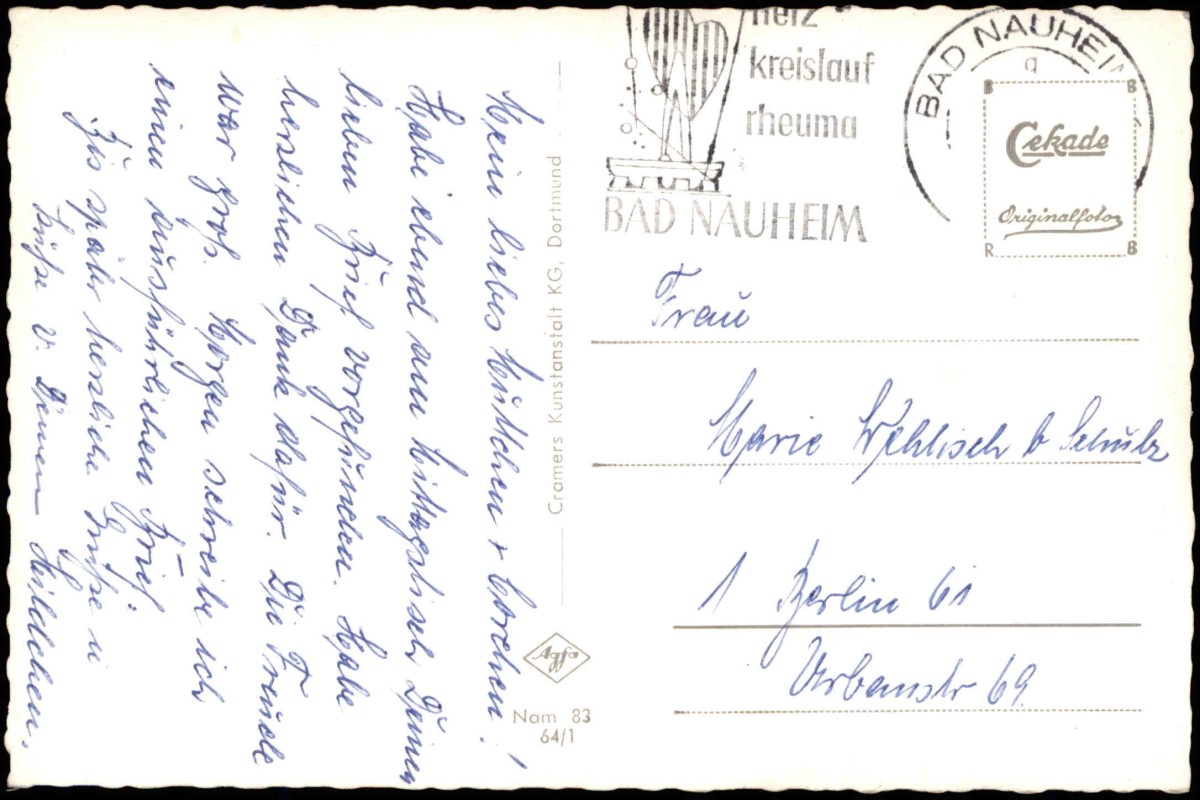 Mein liebes Muttchen + Lorchen!
Habe ebend am Mittagstisch Deinen
lieben Brief vorgefunden. Habe
herzlichen Dank dafür. Die Freude
war groß. Morgen schreibe ich
einen ausführlichen Brief.
Bis später herzliche Grüße u
Küße v. Deinem
Cramers Kunstanstalt KG, Dortmund
Agfa
Nam 83
64/1
herz
kreislauf
rheuma
BAD NAUHEIM
BAD NAUHEIM
a
B B
Cekade
Originalfoto
R B
Frau
Marie Wehlisch b Schulz
1 Berlin 61
Urbanstr 69